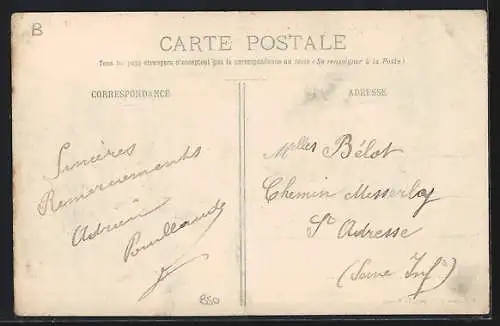 B
CARTE POSTALE
Tous les pays étrangers n'acceptent pas la correspondance au recto (Se renseigner à la Poste)
CORRESPONDANCE
Sincères
Remerciements
Adrien
850
ADRESSE
Melles Bélot
Chemin Messerloy
Ste Adresse
(Seine Infre)